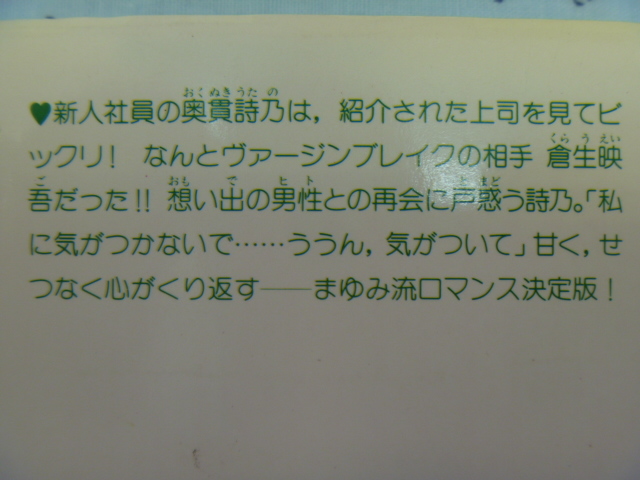 ♥新人社員の奥貫詩乃は，紹介された上司を見てビ
ックリ！ なんとヴァージンブレイクの相手 倉生映
吾だった!! 想い出の男性との再会に戸惑う詩乃。「私
に気がつかないで……ううん，気がついて」甘く，せ
つなく心がくり返す──まゆみ流ロマンス決定版！